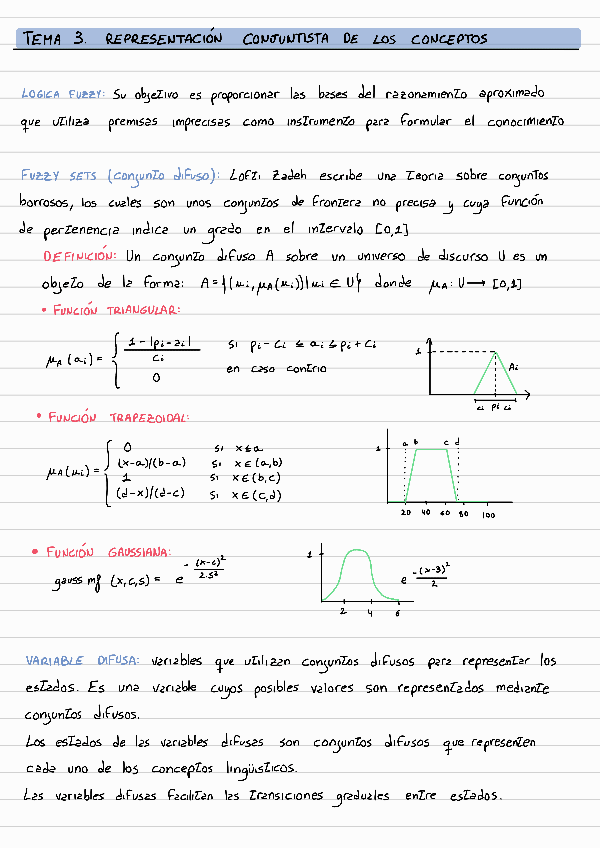 TEMA 3. REPRESENTACIÓN CONJUNTISTA DE LOS CONCEPTOS
LOGICA FUZZY: Su objetivo es proporcionar las bases del razonamiento aproximado
que utiliza premisas imprecisas como instrumento para formular el conocimiento
FUZZY SETS (conjunto difuso): Lofti Zadeh escribe una teoria sobre conjuntos
borrosos, los cuales son unos conjuntos de frontera no precisa y cuya función
de pertenencia indica un grado en el intervalo [0,1]
DEFINICIÓN: Un conjunto difuso A sobre un universo de discurso U es un
objeto de la forma: A={(μi,μA(μi))|μi ∈ U} donde μA: U⟶ [0,1]
• FUNCIÓN TRIANGULAR:
μA (ai) = { 1 - |pi-ai| / ci si pi - ci ≤ ai ≤ pi + ci
0 en caso contrio
1 Ai
ci pi ci
• FUNCIÓN TRAPEZOIDAL:
μA(μi) = { 0 si x≤a
(x-a)/(b-a) si x∈(a,b)
1 si x∈(b,c)
(d-x)/(d-c) si x∈(c,d)
1 a b c d
20 40 60 80 100
• FUNCIÓN GAUSSIANA:
gauss mf (x,c,s) = e^-(x-c)²/2·s²
1 e^-(x-3)²/2
2 4 6
VARIABLE DIFUSA: variables que utilizan conjuntos difusos para representar los
estados. Es una variable cuyos posibles valores son representados mediante
conjuntos difusos.
Los estados de las variables difusas son conjuntos difusos que representen
cada uno de los conceptos lingüísticos.
Las variables difusas facilitan las transiciones graduales entre estados.